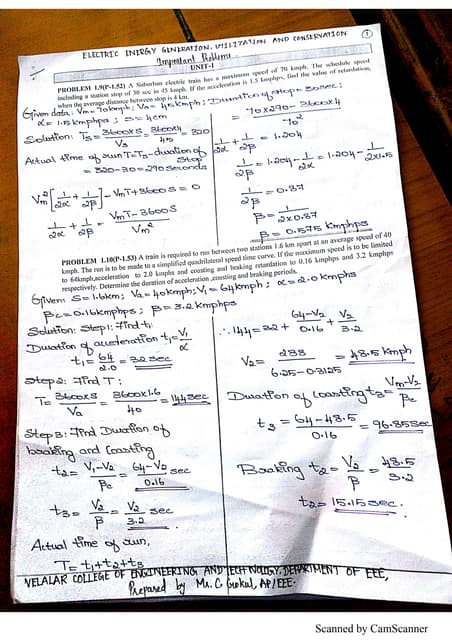 ELECTRIC ENERGY GENERATION, UTILIZATION AND CONSERVATION
1
Important Problems
UNIT-I
PROBLEM 1.9(P-1.52) A Suburban electric train has a maximum speed of 70 kmph. The schedule speed
including a station stop of 30 sec is 45 kmph. If the acceleration is 1.5 kmphps, find the value of retardation,
when the average distance between stop is 4 km.
Given data: Vm = 70kmph; Vs = 45kmph; Duration of stop = 30sec;
α = 1.5 kmphps; S = 4km
Solution: Ts = 3600xS / Vs = 3600x4 / 45 = 320
Actual time of run T = Ts - duration of
stop
= 320-30 = 290 seconds
Vm² [1/2α + 1/2β] - VmT + 3600S = 0
1/2α + 1/2β = VmT - 3600S / Vm²
= 70x290 - 3600x4 / 70²
1/2α + 1/2β = 1.204
1/2β = 1.204 - 1/2α = 1.204 - 1/2x1.5
1/2β = 0.87
β = 1 / 2x0.87
β = 0.575 kmphps
PROBLEM 1.10(P-1.53) A train is required to run between two stations 1.6 km apart at an average speed of 40
kmph. The run is to be made to a simplified quadrilateral speed time curve. If the maximum speed is to be limited
to 64kmph, acceleration to 2.0 kmphs and coasting and braking retardation to 0.16 kmphps and 3.2 kmphps
respectively. Determine the duration of acceleration, coasting and braking periods.
Given: S = 1.6km; Va = 40kmph; V1 = 64kmph; α = 2.0 kmphs
βc = 0.16kmphps; β = 3.2kmphps
Solution: Step1: Find t1
Duration of acceleration t1 = V1 / α
t1 = 64 / 2.0 = 32 sec
Step2: Find T:
T = 3600xS / Va = 3600x1.6 / 40 = 144sec
Step3: Find Duration of
braking and Coasting
t2 = V1-V2 / βc = 64-V2 / 0.16 sec
t3 = V2 / β = V2 / 3.2 sec
Actual time of run,
T = t1+t2+t3
∴ 144 = 32 + 64-V2 / 0.16 + V2 / 3.2
V2 = 288 / 6.25-0.3125 = 48.5 kmph
Duration of Coasting t3 = Vm-V2 / βc
t3 = 64-48.5 / 0.16 = 96.85sec
Braking t2 = V2 / β = 48.5 / 3.2
t2 = 15.15 sec.
VELALAR COLLEGE OF ENGINEERING AND TECHNOLOGY, DEPARTMENT OF EEE,
Prepared by Mr. C. Gokul, AP/EEE.
Scanned by CamScanner